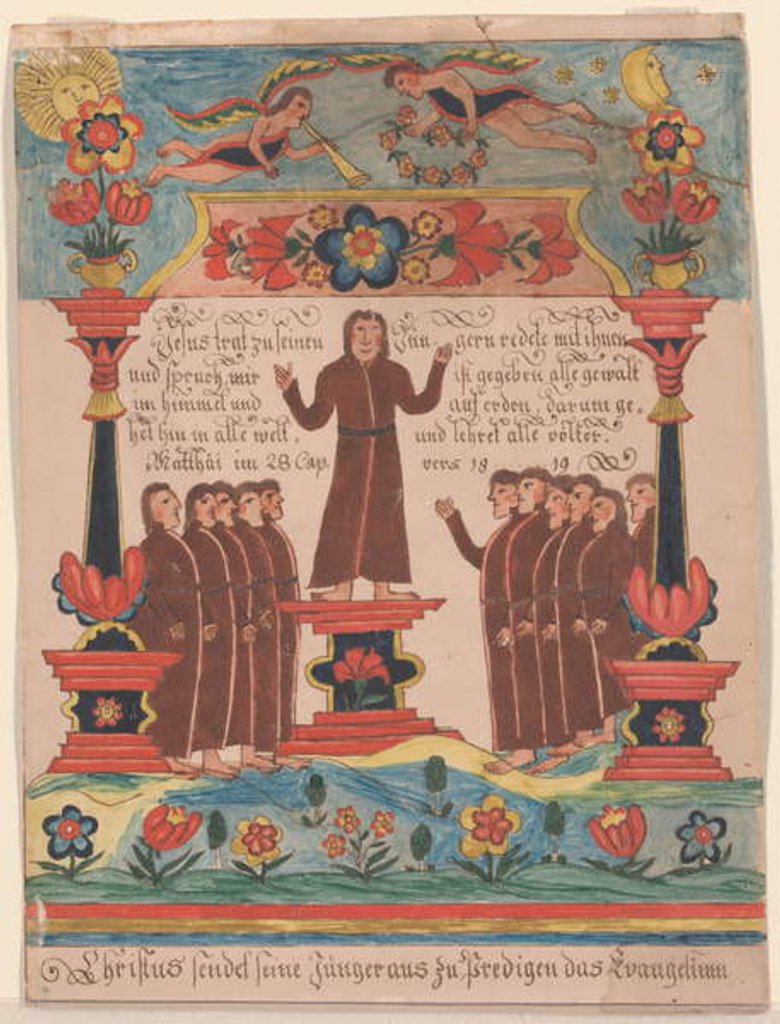 Jesus trat zu seinen Jün gern redete mit ihnen
und spruch mir ist gegeben alle gewalt
im himmel und auf erden, darum ge,
het hin in alle welt, und lehret alle völker.
Matthäi im 28 Cap. vers 18 19
Christus sendet seine Jünger aus zu Predigen das Evangelium